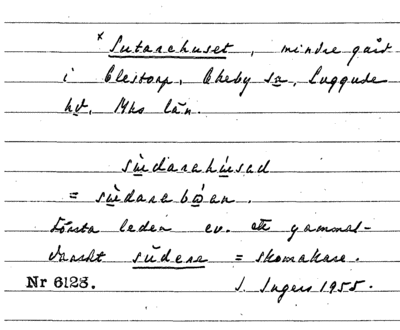 * Sutarehuset, mindre gård
i Clestorp, Ekeby sn, Luggude
hd, Mhs län.
sùdarehùsad
= sùdareboan.
Första leden ev. ett gammal-
danskt sudere = skomakare.
Nr 6128. J. Ingers 1955.